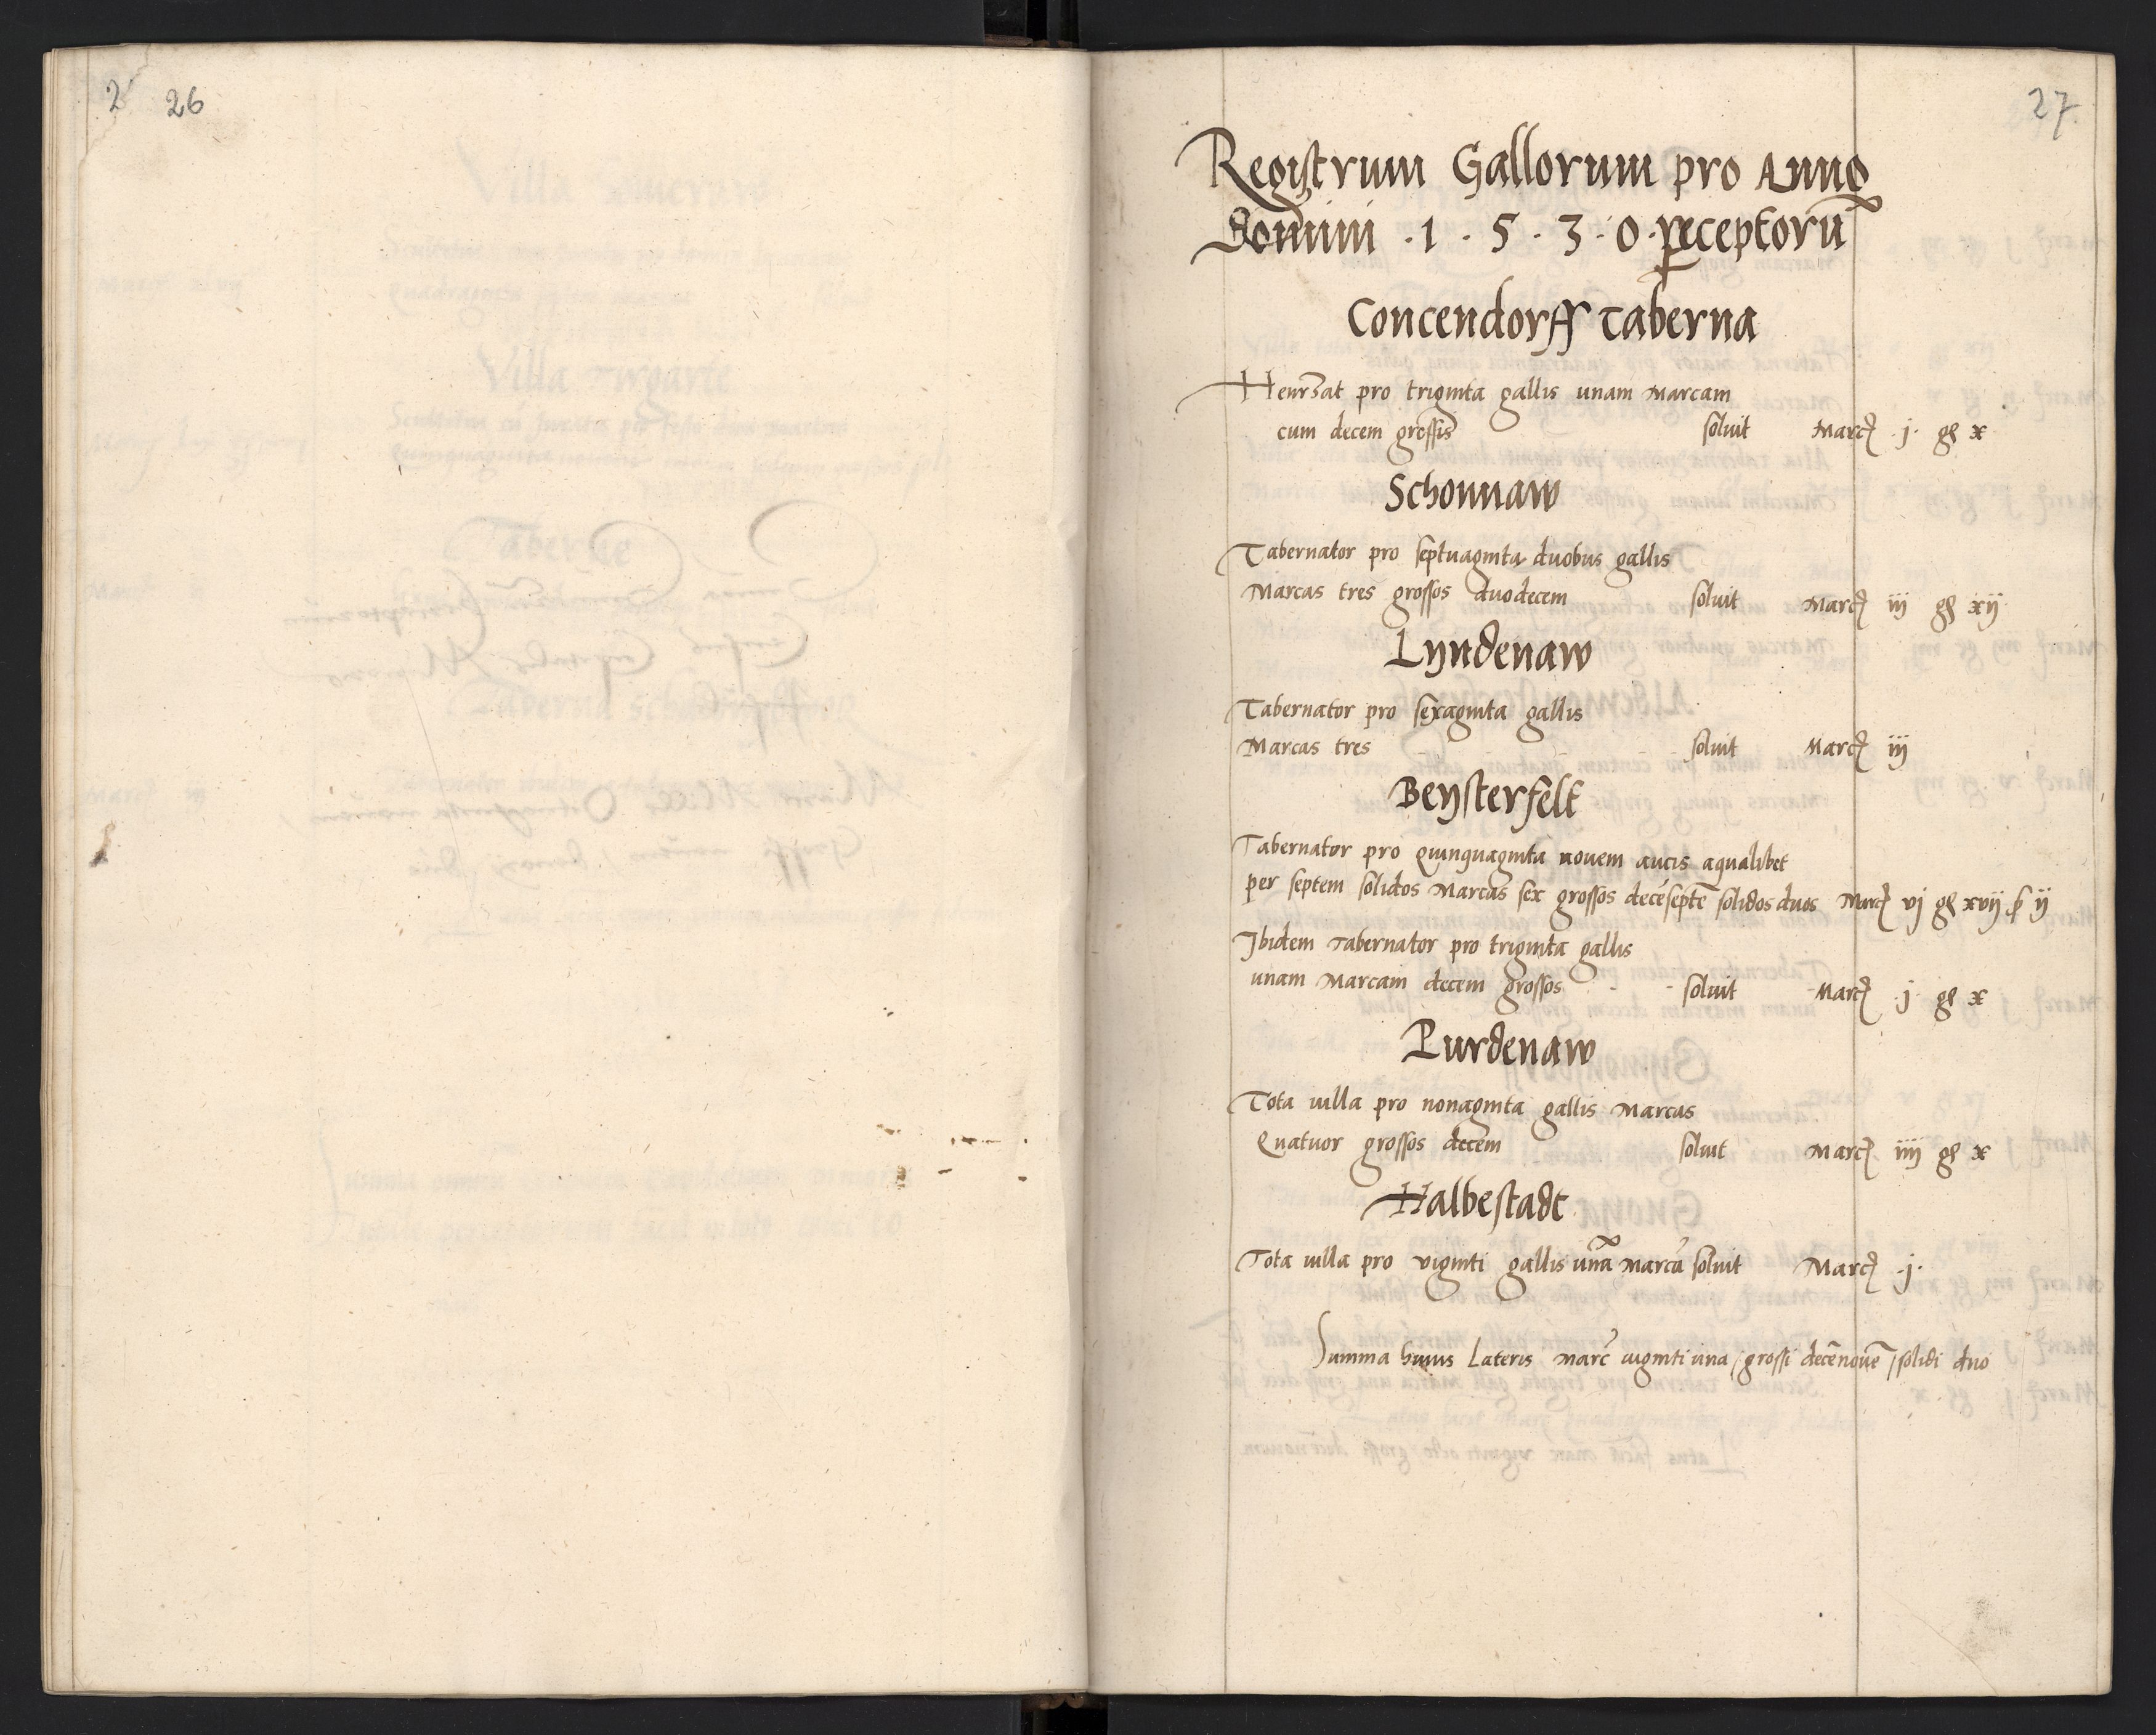 2 26
27
Registrum Gallorum pro Anno
Domini ·1·5·3·0· perceptorũ
Concendorff Taberna
Henrsat pro triginta gallis unam Marcam
cum decem grossis soluit Marcȝ ·j· gℓ x
Schonnaw
Tabernator pro septuaginta duobus gallis
Marcas tres grossos duodecem soluit Marcȝ iij gℓ xij
Lyndenaw
Tabernator pro sexaginta gallis
Marcas tres soluit Marcȝ iij
Beysterfelt
Tabernator pro quinquaginta novem aucis aqualibet
per septem solidos Marcas sex grossos decẽseptẽ solidos duos Marcȝ vj gℓ xvij ẜ ij
Ibidem Tabernator pro triginta gallis
unam Marcam decem grossos soluit Marcȝ ·j· gℓ x
Purdenaw
Tota villa pro nonaginta gallis Marcas
Quatuor grossos decem soluit Marcȝ iiij gℓ x
Halbestadt
Tota villa pro viginti gallis unã Marcã soluit Marcȝ ·j·
Summa huius Lateris Marc̃ viginti una / grossi decẽnovẽ / solidi duo